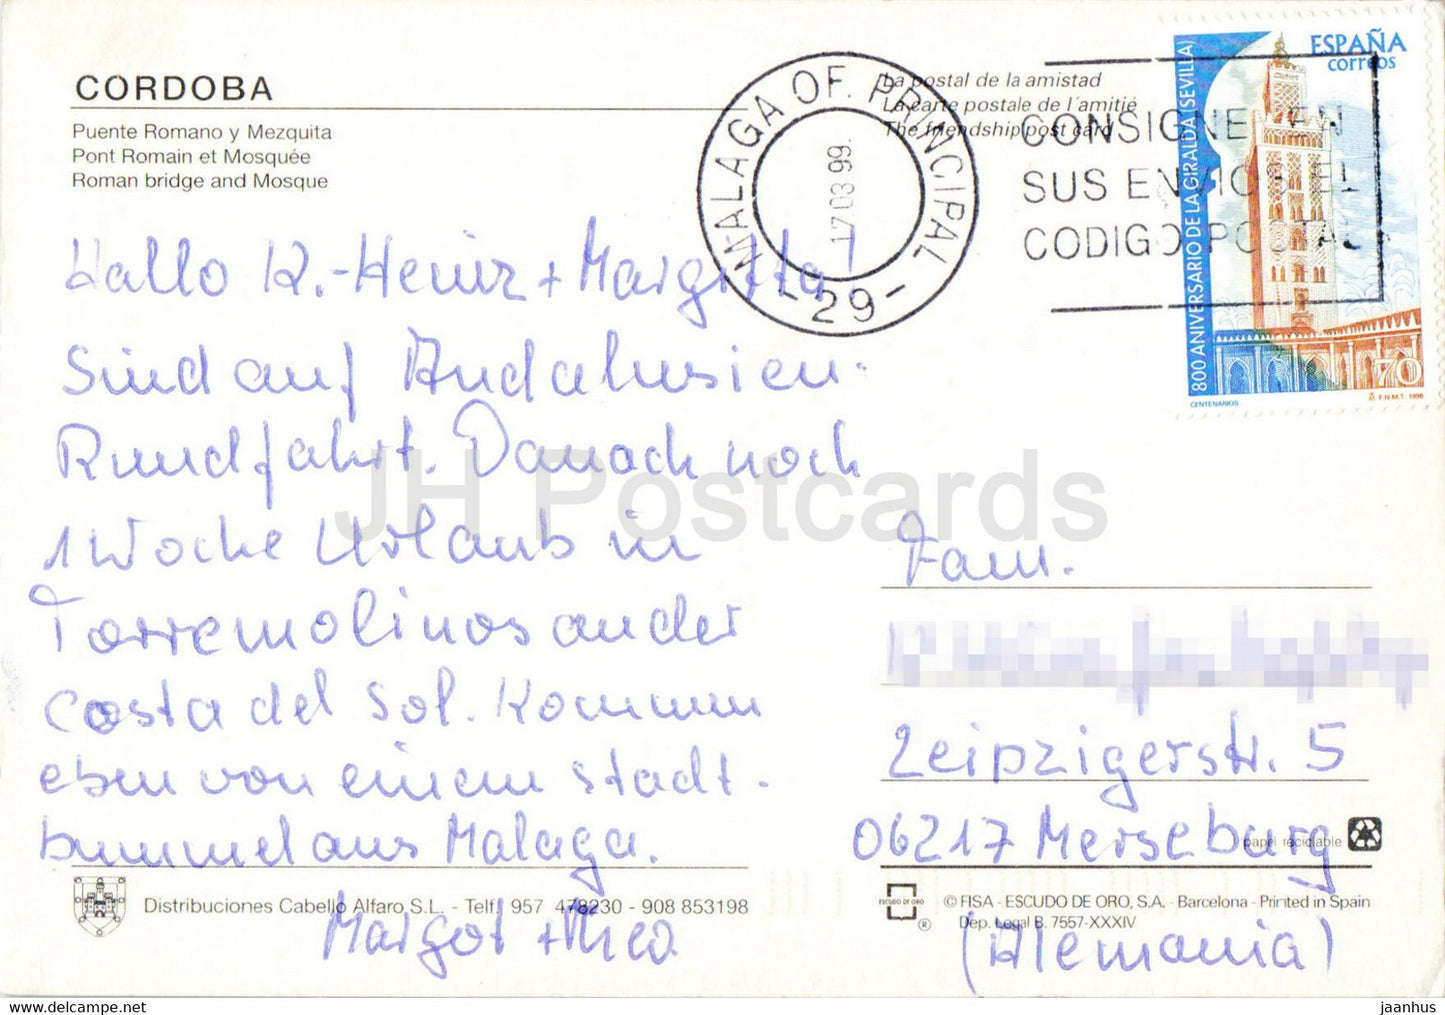 CORDOBA
Puente Romano y Mezquita
Pont Romain et Mosquée
Roman bridge and Mosque
La postal de la amistad
La carte postale de l'amitié
The friendship post card
MALAGA OF. PRINCIPAL
17 03 99
- 29 -
CONSIGNE EN
SUS ENVIOS EL
CODIGO POSTAL
ESPAÑA
correos
800 ANIVERSARIO DE LA GIRALDA (SEVILLA)
70
CENTENARIOS
F.N.M.T. 1998
Hallo K.-Heinz + Margitta!
Sind auf Andalusien-
Rundfahrt. Danach noch
1 Woche Urlaub in
Torremolinos an der
Costa del Sol. Kommen
eben von einem Stadt-
bummel aus Malaga.
Margot +
Fam.
Leipzigerstr. 5
06217 Merseburg
(Alemania)
papel reciclable
Distribuciones Cabello Alfaro, S.L. - Telf. 957 478230 - 908 853198
ESCUDO DE ORO
®
© FISA - ESCUDO DE ORO, S.A. - Barcelona - Printed in Spain
Dep. Legal B. 7557-XXXIV
JH Postcards
www.delcampe.net
jaanhus